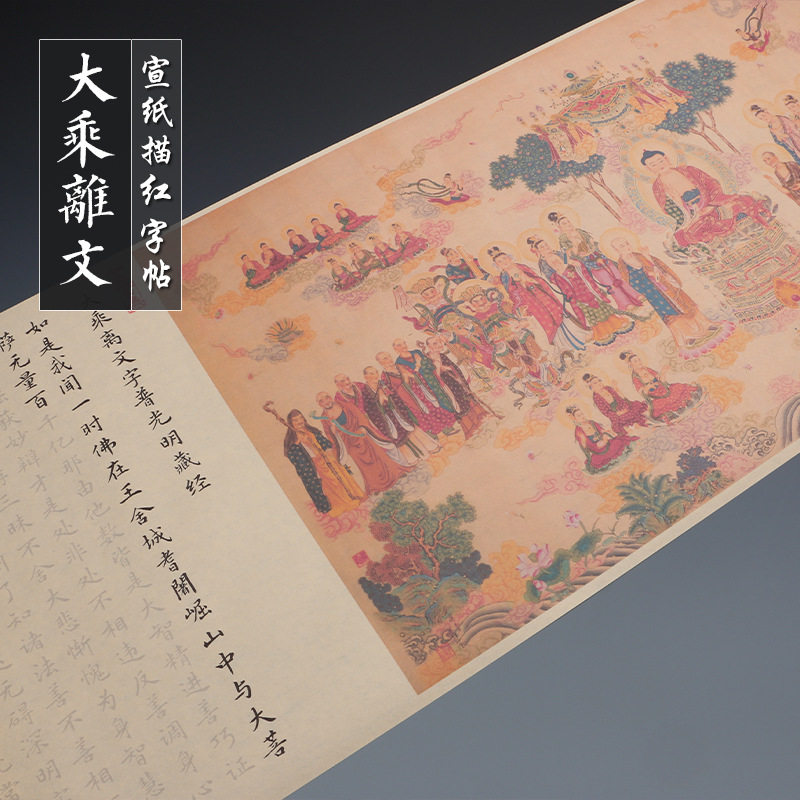 宣纸描红字帖
大乘離文
大乘离文字普光明藏经
如是我闻一时佛在王舍城耆闍崛山中与大菩
萨无量百千亿那由他数皆是大智精进善巧证
妙辩才是处非处不相违反善调身心
三昧不舍大悲惭愧为身智慧
了知诸法善不善相
无碍深明字